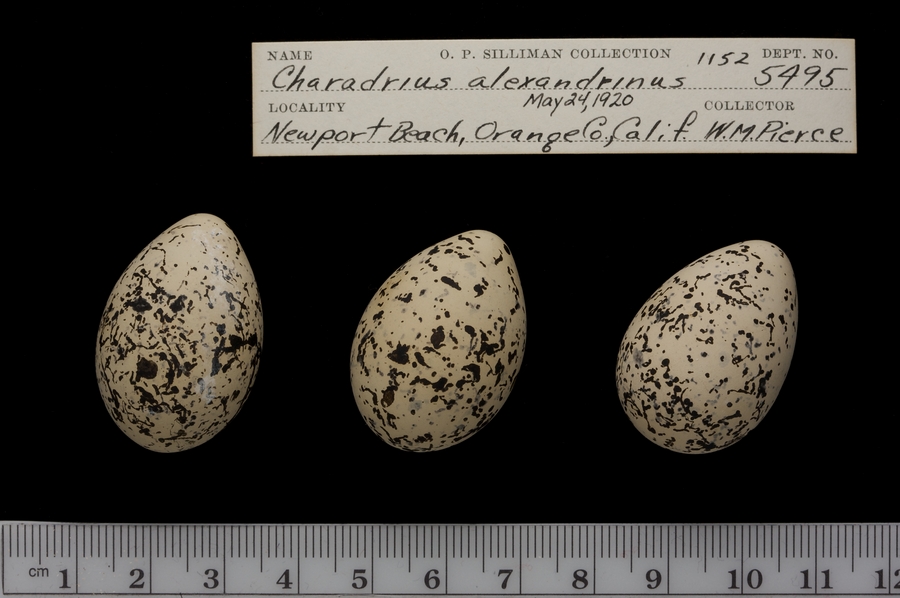 NAME O. P. SILLIMAN COLLECTION 1152 DEPT. NO.
Charadrius alexandrinus 5495
LOCALITY May 24, 1920 COLLECTOR
Newport Beach, Orange Co., Calif. W.M. Pierce
cm 1 2 3 4 5 6 7 8 9 10 11 12